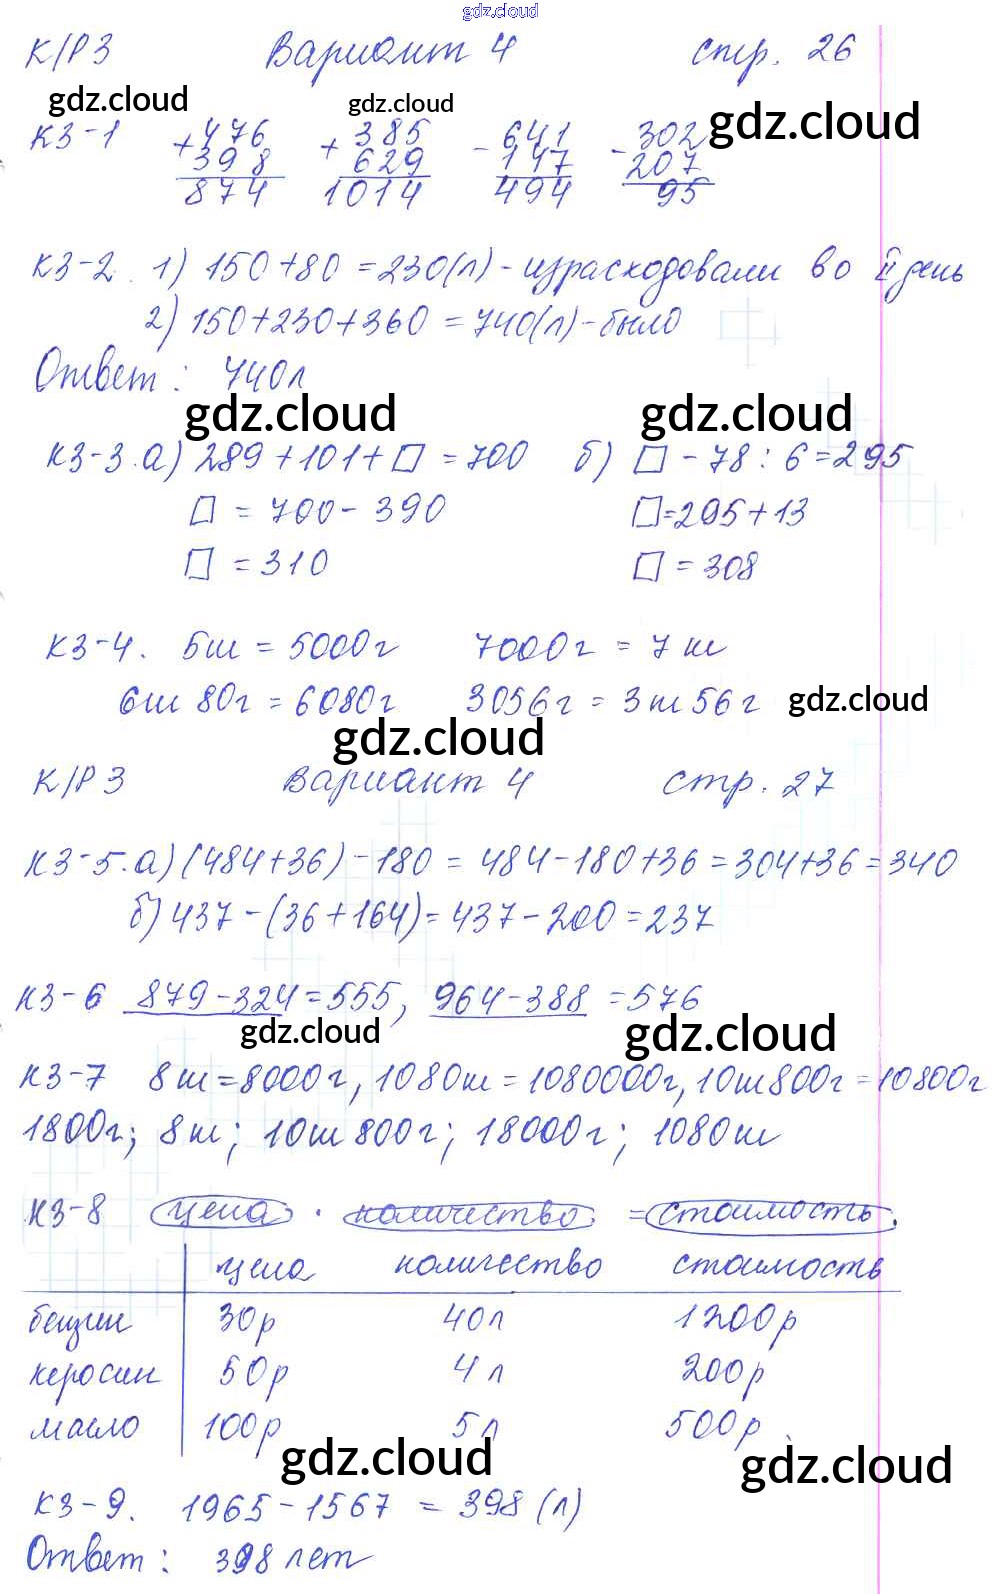 gdz.cloud
К/Р 3 Вариант 4 стр. 26
gdz.cloud gdz.cloud gdz.cloud
К3-1 +476 +385 -641 -302
398 629 147 207
874 1014 494 95
К3-2. 1) 150+80=230(л)-израсходовали во II день
2) 150+230+360=740(л)-было
Ответ: 740л
gdz.cloud gdz.cloud
К3-3.а) 289+101+□=700 б) □-78:6=295
□=700-390 □=295+13
□=310 □=308
К3-4. 5т=5000г 7000г=7т
6т 80г=6080г 3056г=3т 56г gdz.cloud
gdz.cloud
К/Р 3 Вариант 4 стр. 27
К3-5.а) (484+36)-180=484-180+36=304+36=340
б) 437-(36+164)=437-200=237
К3-6 879-324=555, 964-388=576
gdz.cloud gdz.cloud
К3-7 8т=8000г, 1080т=1080000г, 10т800г=10800г
1800г; 8т; 10т 800г; 18000г; 1080т
К3-8 цена · количество =стоимость.
цена количество стоимость
бензин 30р 40л 1200р
керосин 50р 4л 200р
масло 100р 5л 500р.
gdz.cloud gdz.cloud
К3-9. 1965-1567=398(л)
Ответ: 398 лет